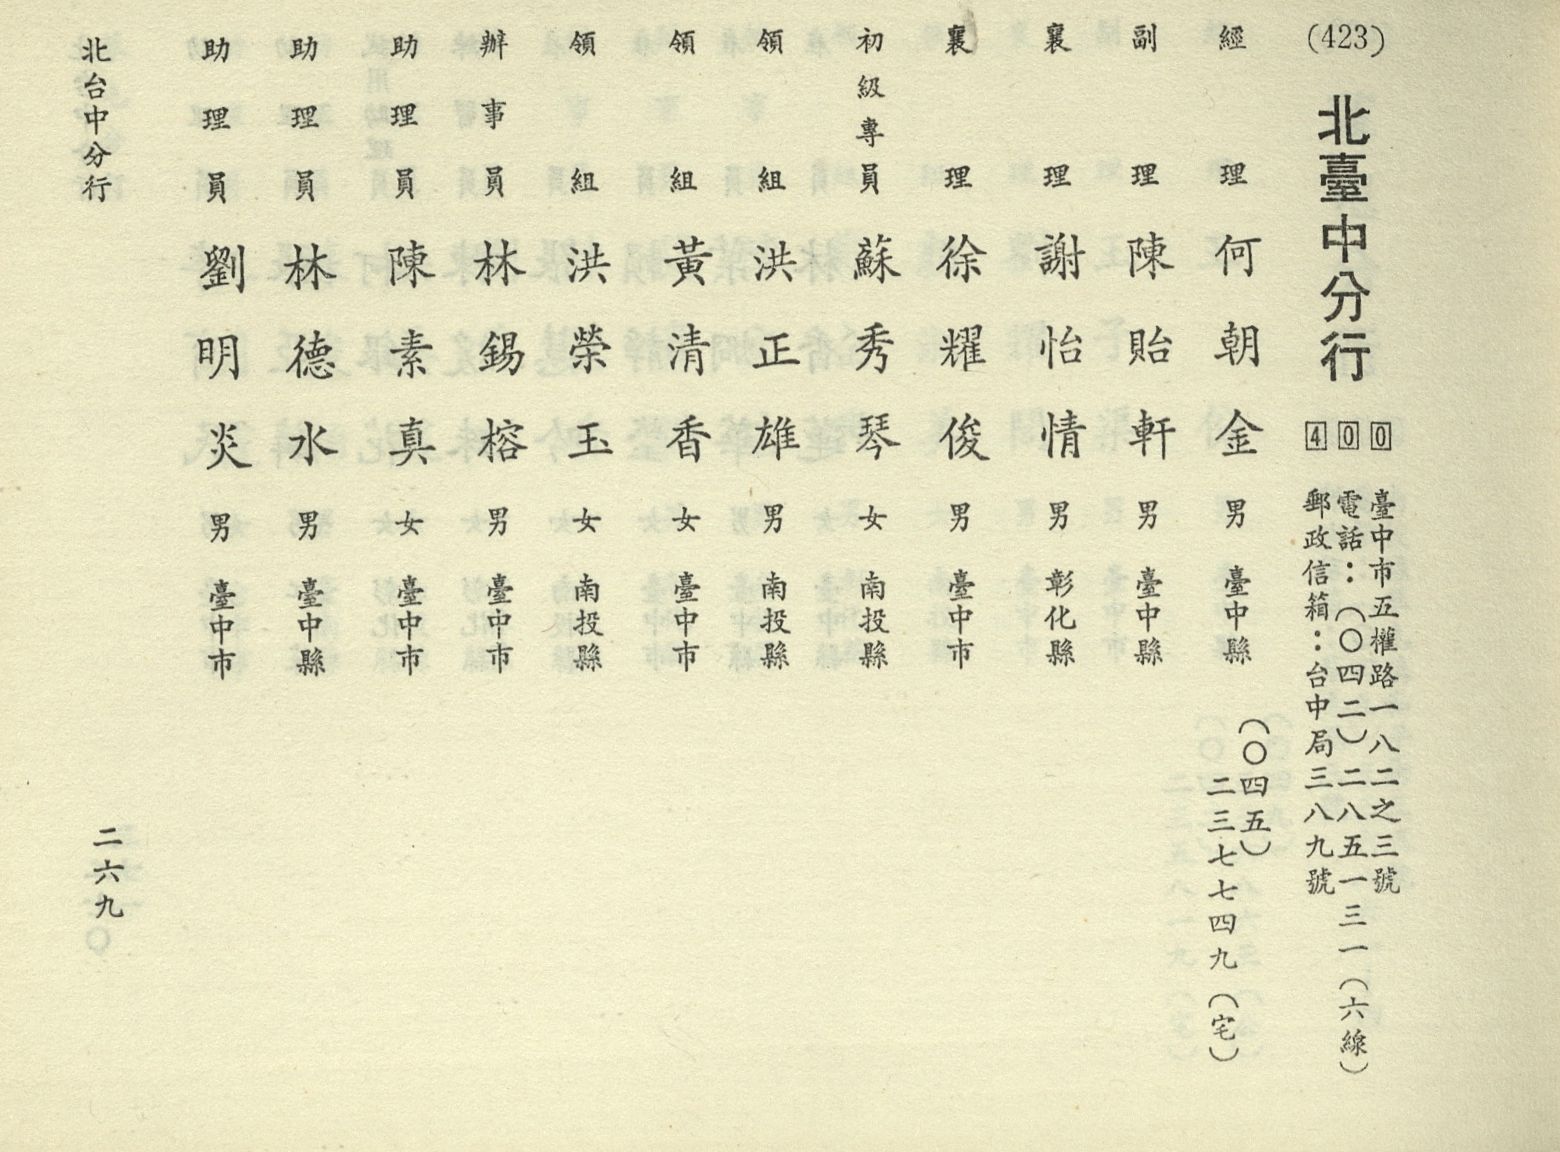 (423)
北臺中分行
400
臺中市五權路一八二之三號
電話：(〇四二)二八五一三一(六線)
郵政信箱：台中局三八九號
經理 何朝金 男 臺中縣
(〇四五)
二三七七四九(宅)
副理 陳貽軒 男 臺中縣
襄理 謝怡情 男 彰化縣
襄理 徐耀俊 男 臺中市
初級專員 蘇秀琴 女 南投縣
領組 洪正雄 男 南投縣
領組 黃清香 女 臺中市
領組 洪榮玉 女 南投縣
辦事員 林錫榕 男 臺中市
助理員 陳素真 女 臺中市
助理員 林德水 男 臺中縣
助理員 劉明炎 男 臺中市
北台中分行
二六九